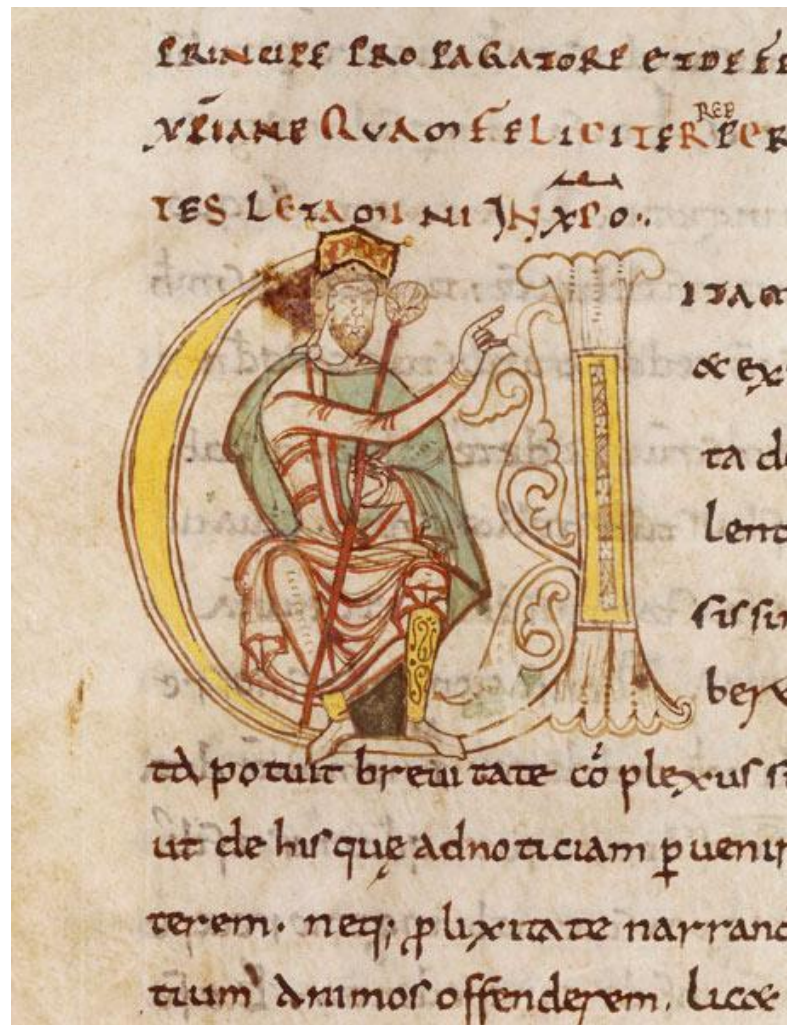 PRINCIPE PROPAGATORE ET DEFE
XPIANE QUAM FELICITER PER
TES LETAMINI IN XPO.
VITAM
& ex
ta de
lent
sissim
ta potuit breuitate cōplexus s
ut de his quę ad noticiam ꝑuenir
terem. neq; ꝓlixitate narrand
tium animos offenderem. lic&